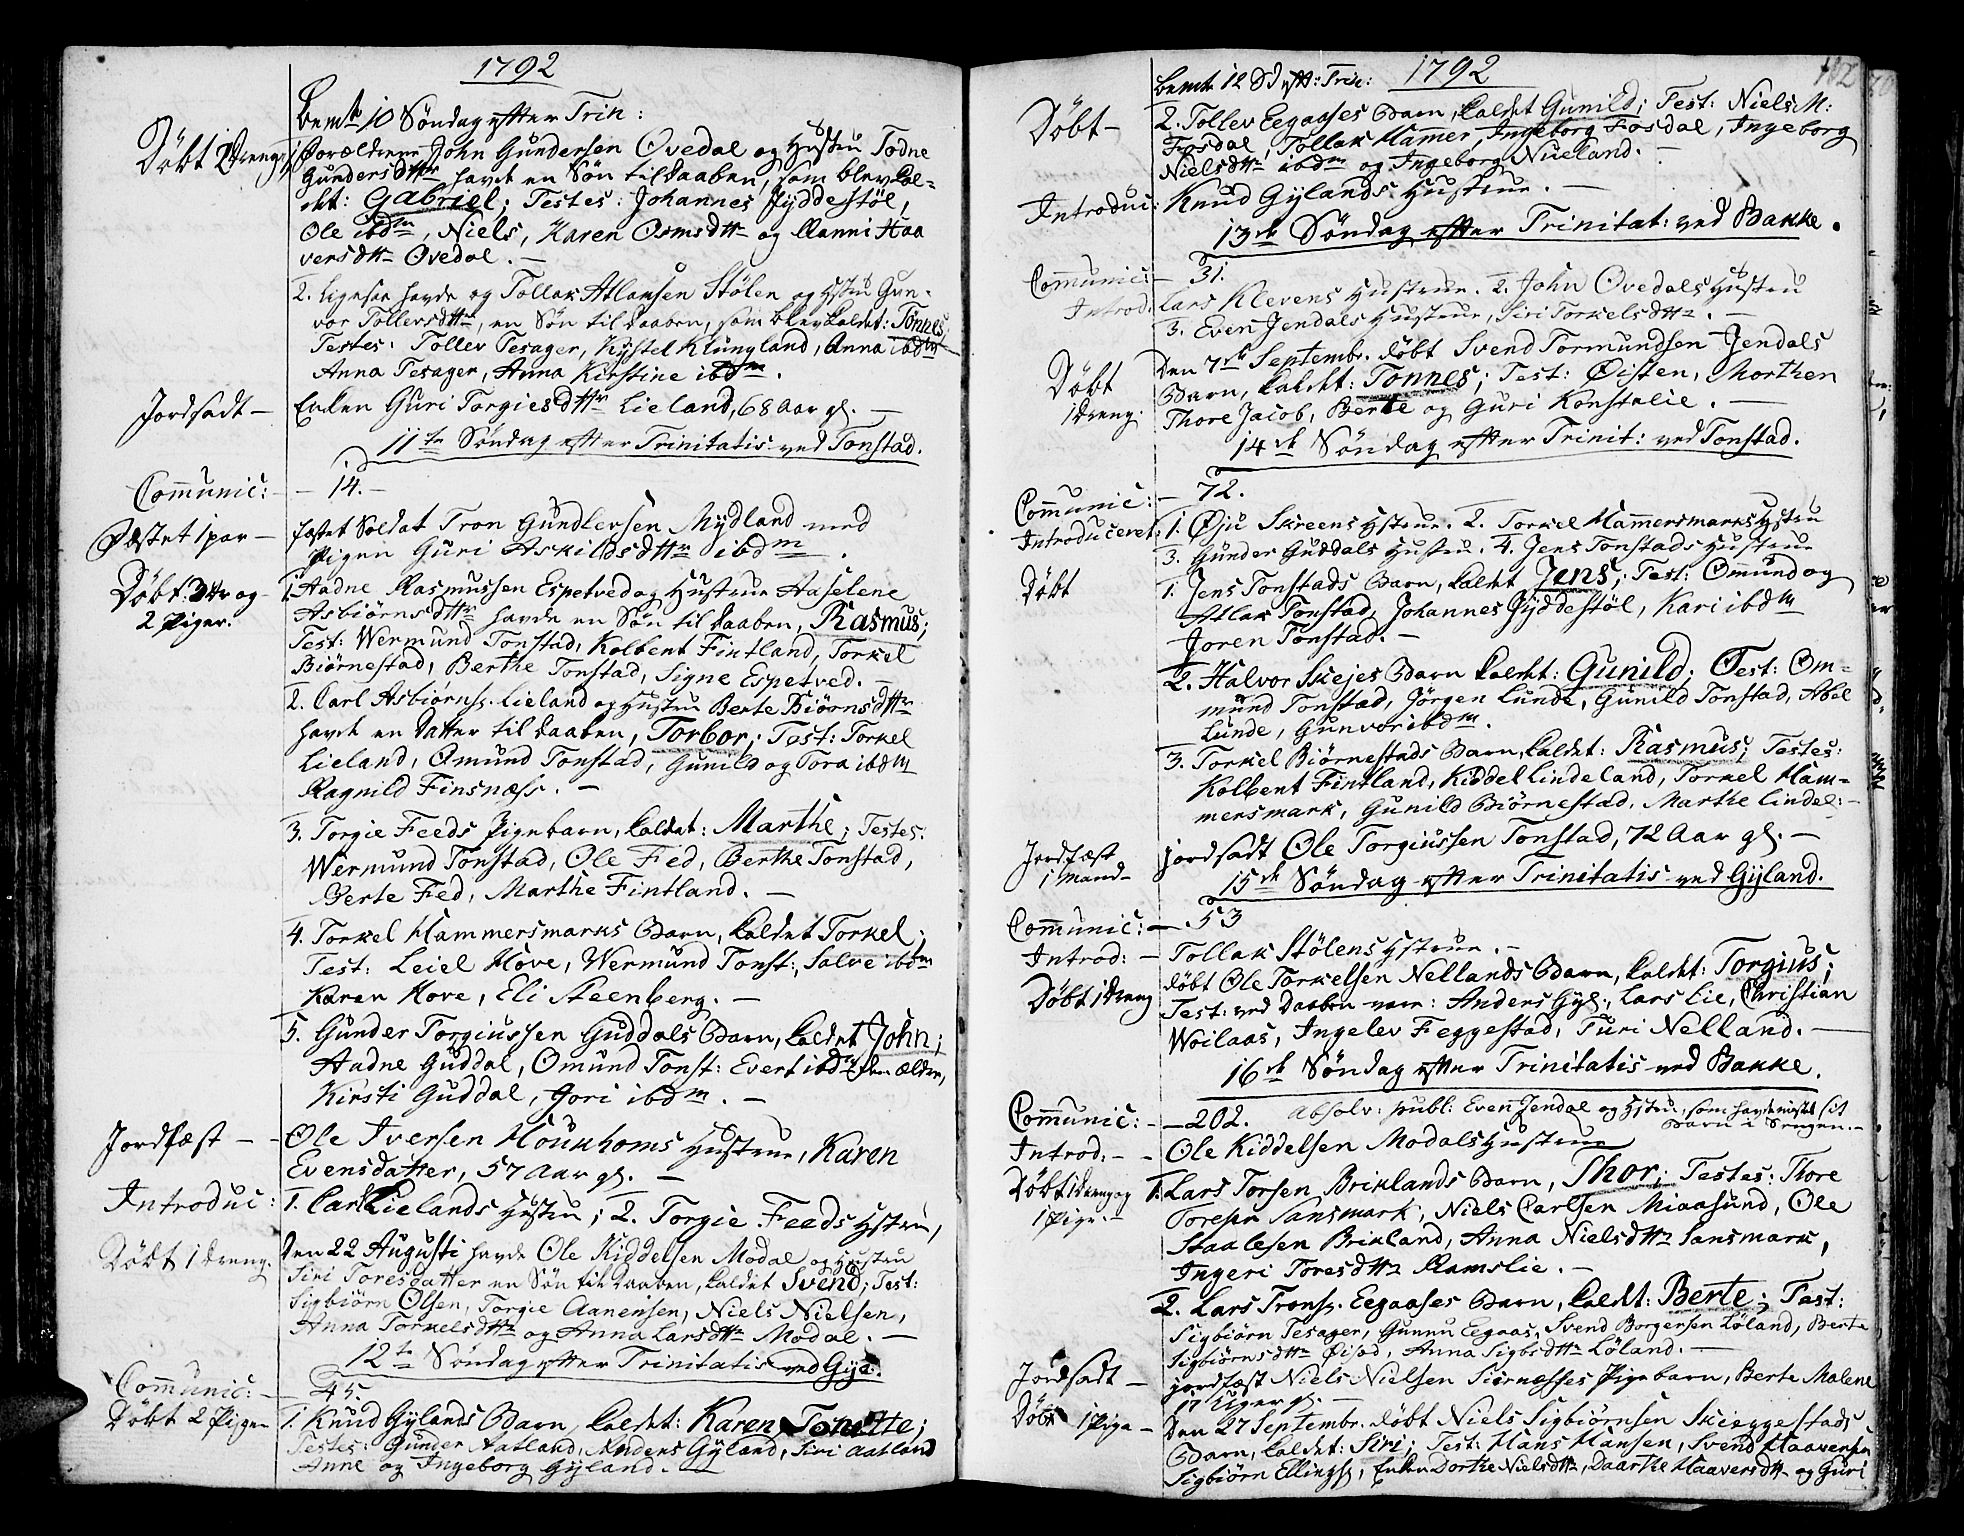 1792
bemte 10 Søndag efter Trin:
Døbt 2 Drenge
1. Forældrene John Gundersen Ovedal og Hustru Todne
Gundersdttr havde en Søn til Daaben, som blev kal-
det: Gabriel; Testes: Johannes Jyddestøl,
Ole ibdm, Niels, Karen Osmsdttr og Ranni Haa
versdttr Ovedal. —
2. Ligesaa havde og Tollak Atlaksen Stølen og Hstru Gun-
vor Tollevsdttr, en Søn til Daaben, som blev kaldet: Tønnes
Testes: Tollev Tesager, Kystel Klungland, Anna ibdm
Anna Tesager, Anna Kirstine ibdm.
Jordsadt —
Enken Guri Torgiesdttr Lieland, 68 Aar gl. —
11te Søndag efter Trinitatis ved Tonstad.
Communic: —
— 14. —
Fæstet 1 par —
fæstet Soldat Tron Gundlersen Mydland med
Pigen Guri Askildsdttr ibdm.
Døbt: 3 dr og
2 Piger.
1. Aadne Rasmussen Espetved og Hustrue Aaselene
Asbiørnsdttr havde en Søn til Daaben, Rasmus;
Test: Wermund Tonstad, Kolbent Fintland, Torkel
Biørnestad, Berthe Tonstad, Signe Espetved. —
2. Carl Asbiørns. Lieland og Hustru Berte Biørnsdttr
havde en Datter til Daaben, Torbor; Test: Torkel
Lieland, Omund Tonstad, Gunild og Tora ibdm
Ragnild Finsnæss. —
3. Torgie Feeds Pigebarn, kaldet: Marthe; Testes:
Wermund Tonstad, Ole Fed, Berthe Tonstad,
Berte Fed, Marthe Fintland. —
4. Torkel Hammersmarks Barn, kaldet Torkel;
Test: Leiel Hove, Wermund Tonst:, Salve ibdm
Karen Hove, Eli Steenberg. —
5. Gunder Torgiussen Guddals Barn, kaldet John;
Aadne Guddal, Omund Tonst: Evert ibdm den ældre,
Kirsti Guddal, Jori ibdm. —
Jordfæst —
Ole Iversen Houkhoms Hustrue, Karen
Evensdatter, 57 Aar gl. —
Introduc:
1. Carl Lielands Hstru; 2. Torgie Feeds Hstru,
Døbt 1 Dreng.
Den 22 Augusti havde Ole Kiddelsen Modal og Hustru
Siri Toresdatter en Søn til Daaben, kaldet Svend; Test:
Sigbiørn Olsen, Torgie Aanensen, Niels Nielsen,
Anna Torkelsdttr og Anna Larsdttr Modal. —
12te Søndag efter Trinitatis ved Gya.
Communic: —
— 45.
Døbt 2 Piger
1. Knud Gylands Barn, kaldet: Karen Tonette;
Testes: Gunder Aatland, Anders Gyland, Siri Aatland
Anne og Ingeborg Gyland. —
1792
bemte 12 Sd eft: Trin:
Døbt —
2. Tollev Eegaases Barn, kaldet Gunild; Test: Niels M:
Fosdal, Tollak Hammer, Ingeborg Fosdal, Ingeborg
Nielsdttr ibdm og Ingeborg Nueland. —
Introduc:
Knud Gylands Hustrue. —
13de Søndag efter Trinitat: ved Bakke.
Communic: —
31.
Introd:
Lars Klevens Hustrue. 2. John Ovedals Hustru
3. Even Jendals Hustrue, Siri Torkelsdttr. —
Døbt
1 Dreng.
Den 7de Septembr. døbt Svend Tormundsen Jendals
Barn, kaldet: Tonnes; Test: Øisten, Morthen
Thore Jacob, Berte og Guri Konstalie. —
14de Søndag efter Trinit: ved Tonstad.
Communic: —
72.
Introduceret:
1. Øju Skreens Hstrue. 2. Torkel Hammersmarks Hstru
3. Gunder Guddals Hustru. 4. Jens Tonstads Hustrue
Døbt
1. Jens Tonstads Barn, kaldet Jens; Test: Ommund og
Atlak Tonstad, Johannes Jyddestøl, Kari ibdm
Joren Tonstad. —
2. Halvor Skejes Barn kaldet: Gunild; Test: Om-
mund Tonstad, Jørgen Lunde, Gunild Tonstad, Abel
Lunde, Gunvor ibdm.
3. Torkel Biørnestads Barn, kaldet: Rasmus; Testes:
Kolbent Fintland, Kiddel Lindeland, Torkel Ham-
mersmark, Gunild Biørnestad, Marthe Lindel: —
Jordfæst
1 Mand —
jordsadt Ole Torgiussen Tonstad, 72 Aar gl. —
15de Søndag efter Trinitatis ved Gyland.
Communic: —
53
Introd: —
Tollak Stølens Hstrue. —
Døbt 1 Dreng
døbt Ole Torkelsen Nellands Barn, kaldet: Torgius;
Test: ved Daaben vare: Anders Gyl., Lars Lie, Christian
Woilaas, Ingelev Feggestad, Turi Nelland. —
16de Søndag efter Trinitatis ved Bakke.
Communic: —
— 202. Absolv: publ: Even Jendal og Hstru, som havde mistet sit
Barn i Sengen. —
Introd: —
Ole Kiddelsen Modals Hustrue
Døbt 1 Dreng og
1 Pige. —
1. Lars Torsen Briklands Barn, Thor; Testes: Thore
Toresen Sansmark, Niels Carlsen Miaasund, Ole
Staalesen Brikland, Anna Nielsdttr Sansmark,
Ingeri Toresdttr Ramslie. —
2. Lars Trons. Eegaases Barn, kaldet: Berte; Test:
Sigbiørn Tesager, Gunnu Eegaas, Svend Borgersen Løland, Berte
Sigbiørnsdttr Øisød, Anna Sigbsdttr Løland. —
Jordsadt —
jordfæst Niels Nielsen Siernæsses Pigebarn, Berte Malene
17 Uger gl. —
Døbt 1 Pige —
Den 27 Septembr. døbt Niels Sigbiørnsen Skieggestads
Barn, kaldet: Siri; Test: Hans Hansen, Svend Haavensen
Sigbiørn Ellings., Enken Dorthe Nielsdttr, Daarthe Haaversdttr og Guri